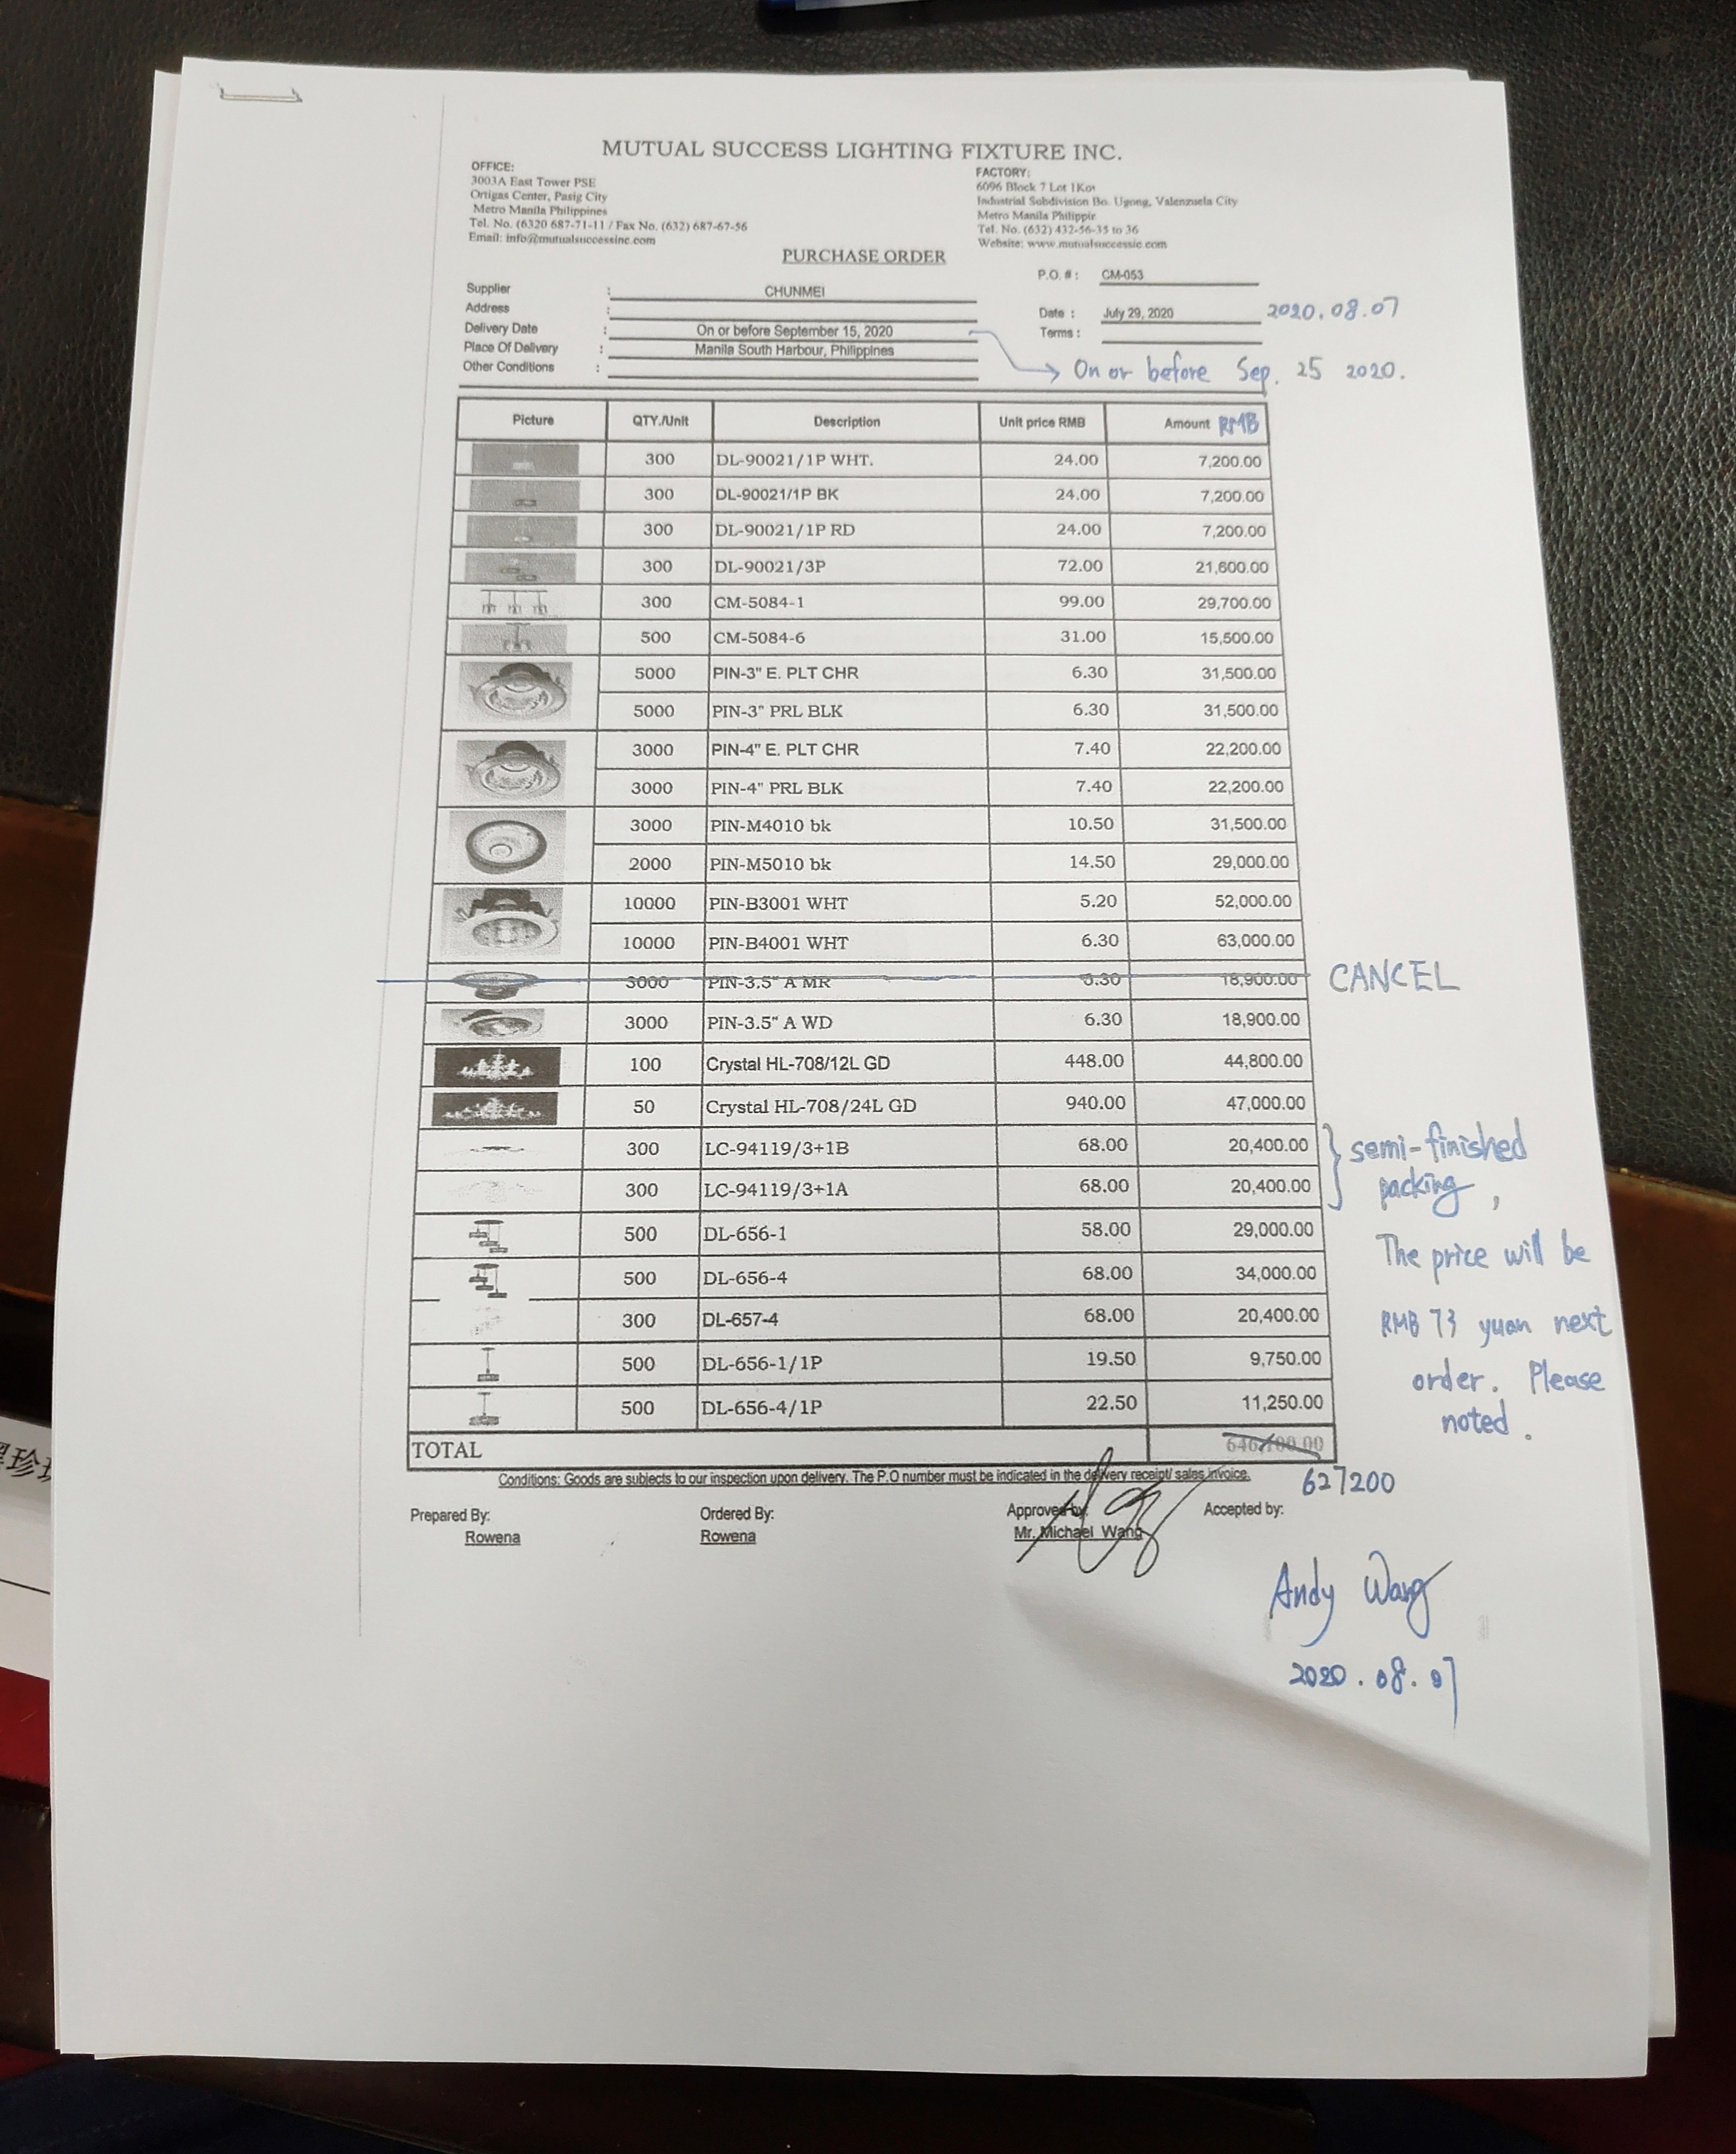 MUTUAL SUCCESS LIGHTING FIXTURE INC.
OFFICE:
3003A East Tower PSE
Ortigas Center, Pasig City
Metro Manila Philippines
Tel. No. (6320 687-71-11 / Fax No. (632) 687-67-56
Email: info@mutualsuccessinc.com
FACTORY:
6096 Block 7 Lot 1Kor
Industrial Subdivision Bo. Ugong, Valenzuela City
Metro Manila Philippir
Tel. No. (632) 432-56-35 to 36
Website: www.mutualsuccessic.com
PURCHASE ORDER
P.O. # : CM-053
Supplier : CHUNMEI
Address :
Date : July 29, 2020 2020.08.07
Delivery Date : On or before September 15, 2020
Terms :
Place Of Delivery : Manila South Harbour, Philippines
Other Conditions :
On or before Sep. 25 2020.
Picture QTY./Unit Description Unit price RMB Amount RMB
300 DL-90021/1P WHT. 24.00 7,200.00
300 DL-90021/1P BK 24.00 7,200.00
300 DL-90021/1P RD 24.00 7,200.00
300 DL-90021/3P 72.00 21,600.00
300 CM-5084-1 99.00 29,700.00
500 CM-5084-6 31.00 15,500.00
5000 PIN-3" E. PLT CHR 6.30 31,500.00
5000 PIN-3" PRL BLK 6.30 31,500.00
3000 PIN-4" E. PLT CHR 7.40 22,200.00
3000 PIN-4" PRL BLK 7.40 22,200.00
3000 PIN-M4010 bk 10.50 31,500.00
2000 PIN-M5010 bk 14.50 29,000.00
10000 PIN-B3001 WHT 5.20 52,000.00
10000 PIN-B4001 WHT 6.30 63,000.00
3000 PIN-3.5" A MR 6.30 18,900.00 CANCEL
3000 PIN-3.5" A WD 6.30 18,900.00
100 Crystal HL-708/12L GD 448.00 44,800.00
50 Crystal HL-708/24L GD 940.00 47,000.00
300 LC-94119/3+1B 68.00 20,400.00
300 LC-94119/3+1A 68.00 20,400.00
500 DL-656-1 58.00 29,000.00
500 DL-656-4 68.00 34,000.00
300 DL-657-4 68.00 20,400.00
500 DL-656-1/1P 19.50 9,750.00
500 DL-656-4/1P 22.50 11,250.00
semi-finished
packing,
The price will be
RMB 73 yuan next
order. Please
noted.
TOTAL 646,100.00
Conditions: Goods are subjects to our inspection upon delivery. The P.O number must be indicated in the delivery receipt/ sales invoice.
627200
Prepared By: Ordered By: Approved by: Accepted by:
Rowena Rowena Mr. Michael Wang
Andy Wang
2020.08.07